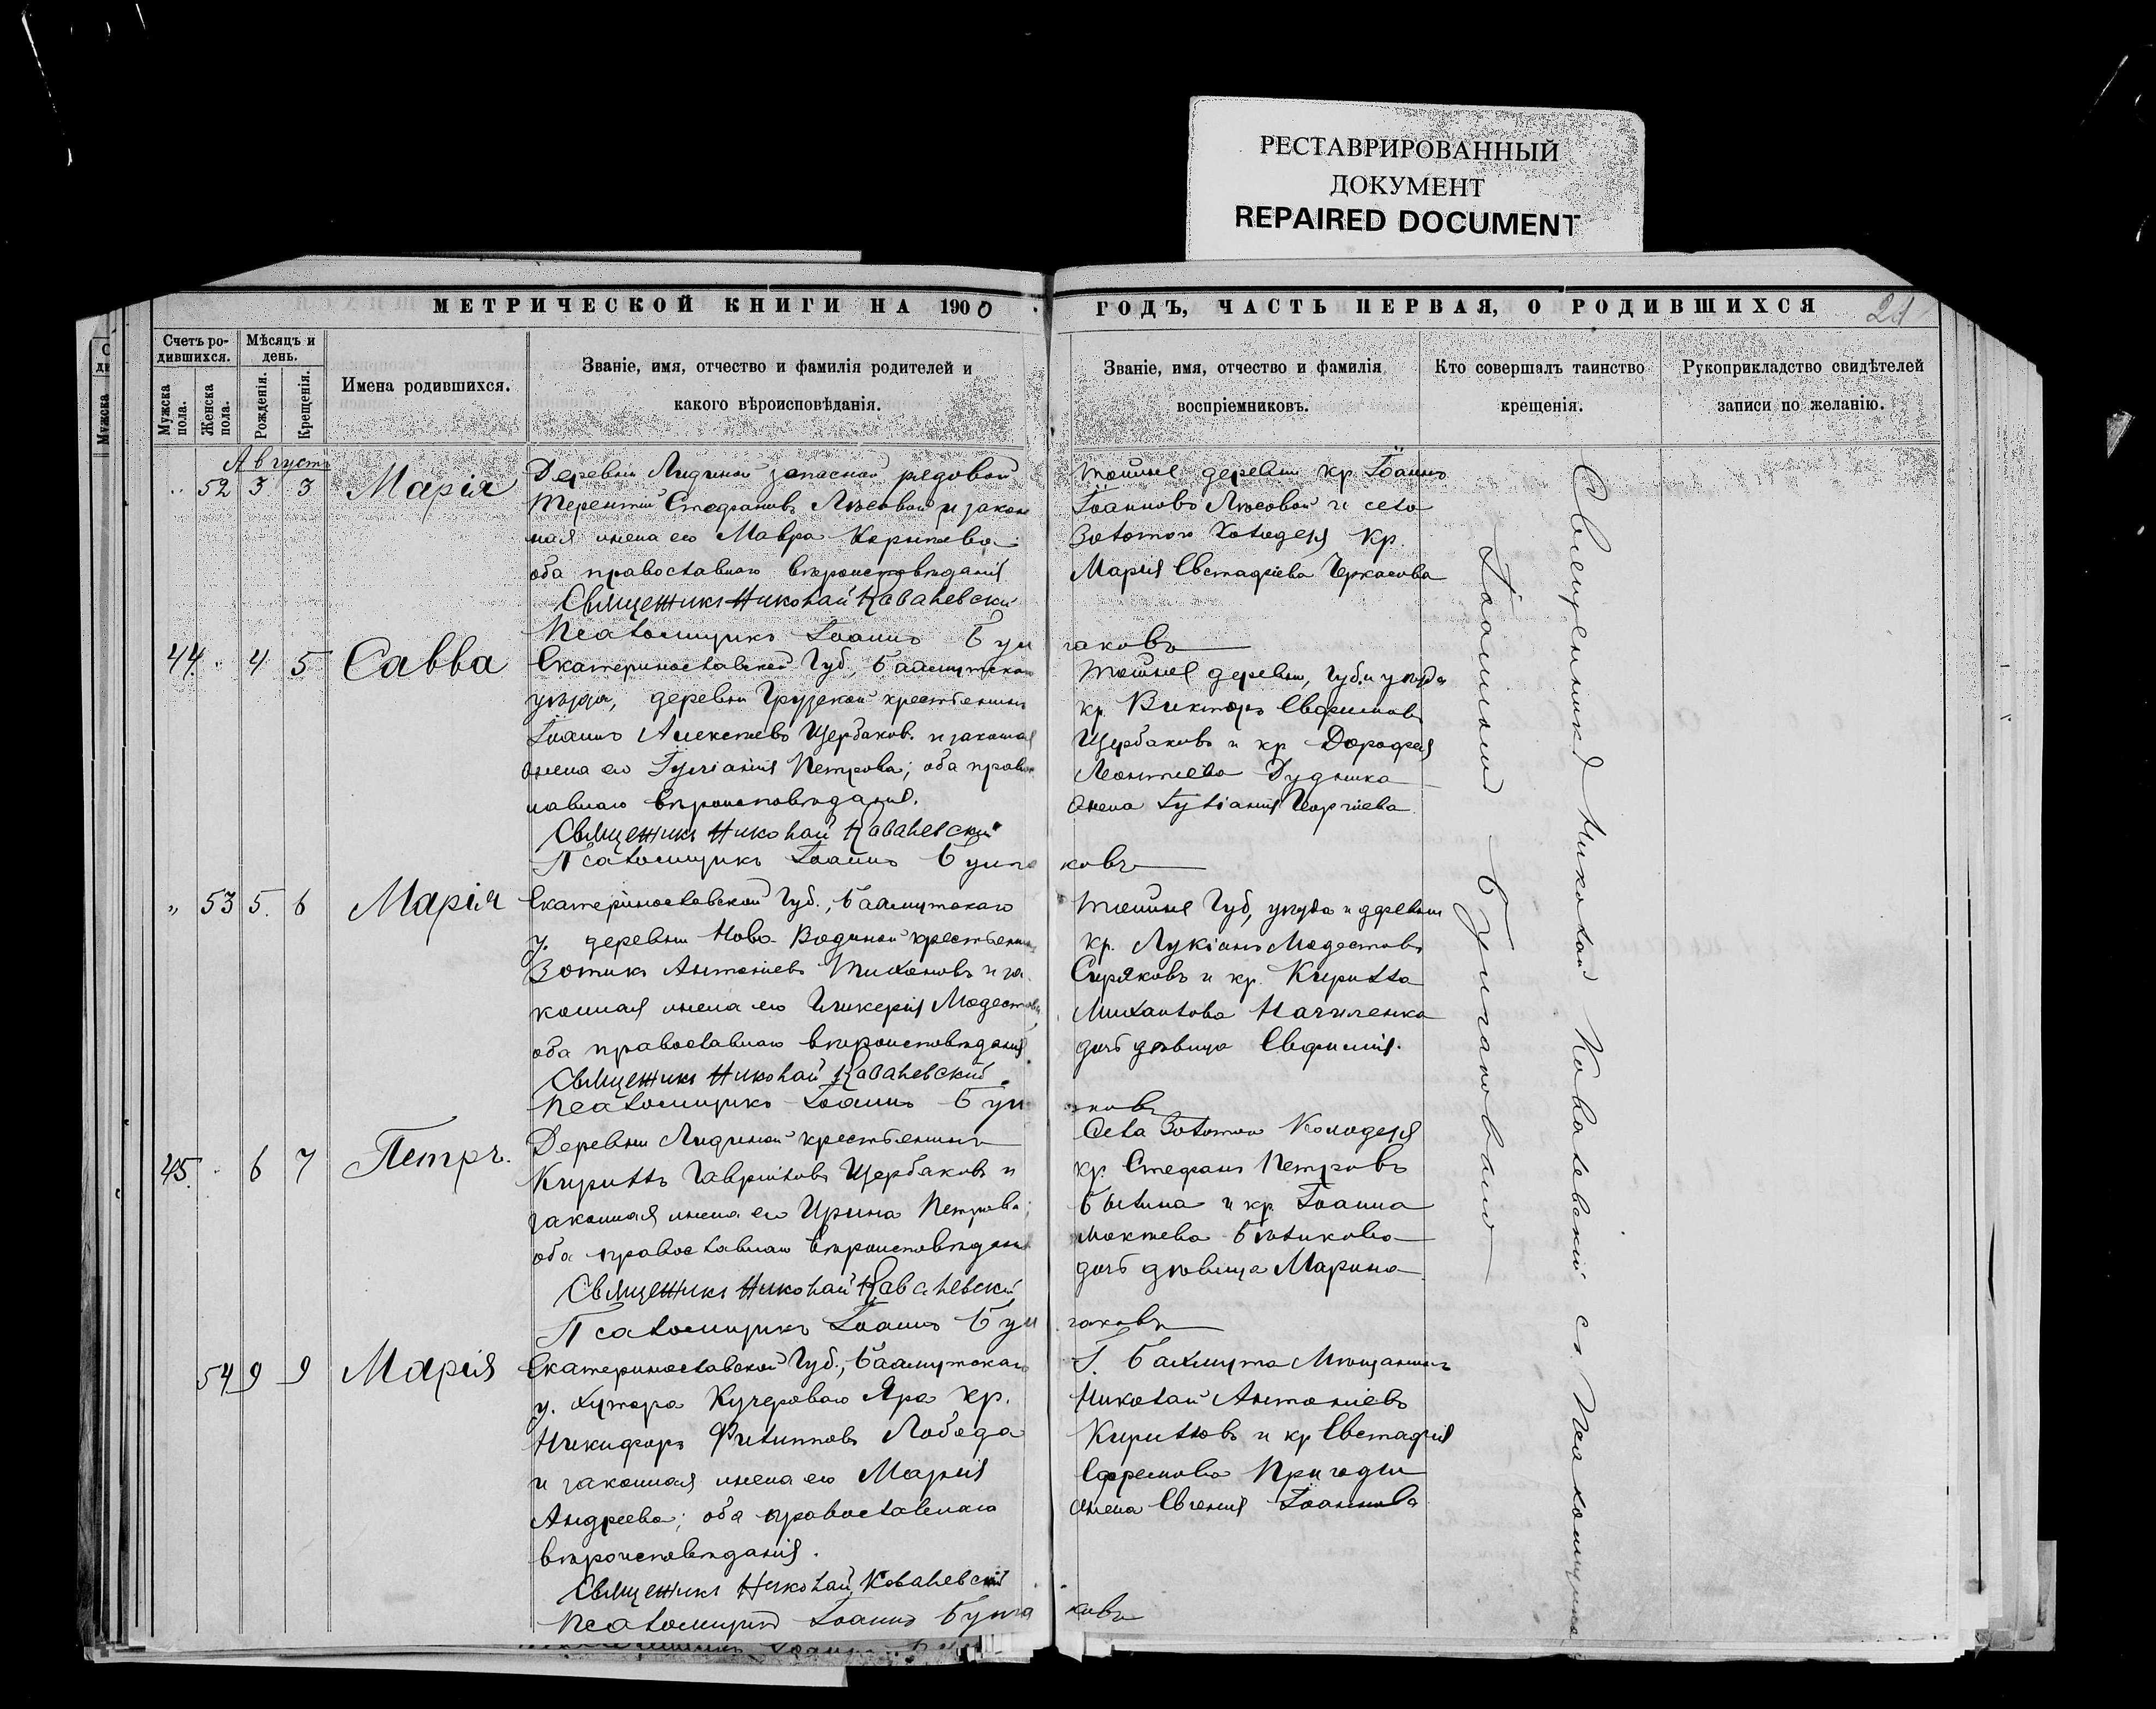 РЕСТАВРИРОВАННЫЙ
ДОКУМЕНТ
REPAIRED DOCUMENT
МЕТРИЧЕСКОЙ КНИГИ НА 1900
ГОДЪ, ЧАСТЬ ПЕРВАЯ, О РОДИВШИХСЯ
21
Счетъ ро-
дившихся.
Мужска
пола.
Женска
пола.
Мѣсяцъ и
день.
Рожденія.
Крещенія.
Имена родившихся.
Званіе, имя, отчество и фамилія родителей и
какого вѣроисповѣданія.
Званіе, имя, отчество и фамилія
воспріемниковъ.
Кто совершалъ таинство
крещенія.
Рукоприкладство свидѣтелей
записи по желанію.
Августъ
52 3 3 Марія
Деревни Лидиной запасной рядовой
Терентій Стефановъ Лѣсовой и закон
ная жена его Мавра
оба православнаго вѣроисповѣданія
Священникъ Николай Ковалевскій
Псаломщикъ Іоаннъ Бул
гаковъ
тойже деревни кр. Іоаннъ
Іоанновъ Лѣсовой и села
Золотого Колодезя кр.
Марія Евстафіева Черкасова
44 4 5 Савва
Екатеринославской Губ., Бахмутскаго
уѣзда, деревни Грузской крестьянинъ
Іоаннъ Алексѣевъ Щербаковъ и законная
жена его Іуліанія Петрова; оба право
славнаго вѣроисповѣданія.
Священникъ Николай Ковалевскій
Псаломщикъ Іоаннъ Булга
ковъ
тойже деревни, Губ. и уѣзда
кр. Викторъ Евфимовъ
Щербаковъ и кр. Дорофея
Леонтіева Рудника
жена Іуліанія Георгіева
53 5. 6 Марія
Екатеринославской Губ., Бахмутскаго
у. деревни Ново-Водяной крестьянинъ
Зотикъ Антоніевъ Тихоновъ и за
конная жена его Гликерія Модестова
оба православнаго вѣроисповѣданія
Священникъ Николай Ковалевскій
Псаломщикъ Іоаннъ Бул
аковъ
тойже Губ, уѣзда и деревни
кр. Лукіанъ Модестовъ
Сиряковъ и кр. Кирилла
Михайлова
дочь дѣвица Евфимія.
45. 6 7 Петръ.
Деревни Лидиной крестьянинъ
Кириллъ Гавріиловъ Щербаковъ и
законная жена его Ирина Петрова;
оба православнаго вѣроисповѣданія
Священникъ Николай Ковалевскій
Псаломщикъ Іоаннъ Бул
гаковъ
Села Золотого Колодезя
кр. Стефанъ Петровъ
и кр. Іоанна
дочь дѣвица Марина
54 9 9 Марія
Екатеринославской Губ., Бахмутскаго
у. хутора Кучероваго Яра кр.
Никифоръ Филипповъ Лобода
и законная жена его Марія
Андреева; оба православнаго
вѣроисповѣданія.
Священникъ Николай Ковалевскій
Псаломщикъ Іоаннъ Булга
ковъ
Г. Бахмута Мѣщанинъ
Николай Антоніевъ
Кирилловъ и кр. Евстафія
Ефремова Пригоды
жена Евгенія Іоаннова
Священникъ Николай Ковалевскій съ Псаломщикомъ
Іоанномъ Булгаковымъ